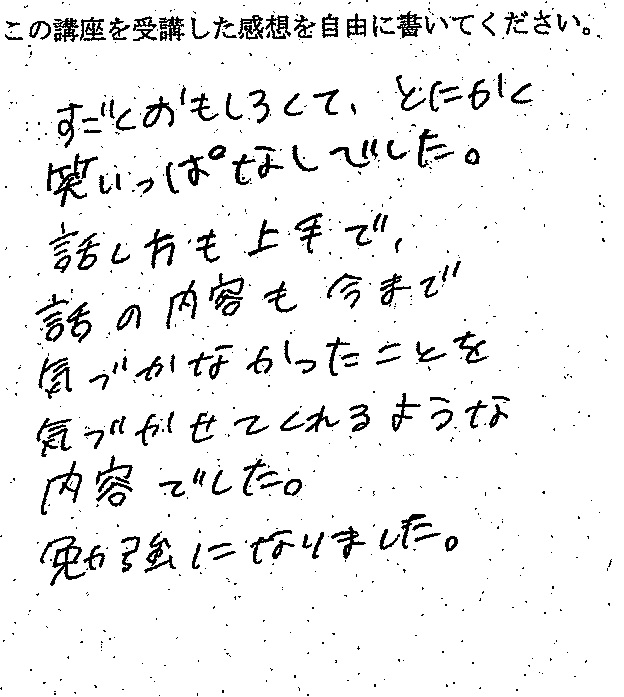 この講座を受講した感想を自由に書いてください。
すごくおもしろくて、とにかく
笑いっぱなしでした。
話し方も上手で、
話の内容も今まで
気づかなかったことを
気づかせてくれるような
内容でした。
勉強になりました。